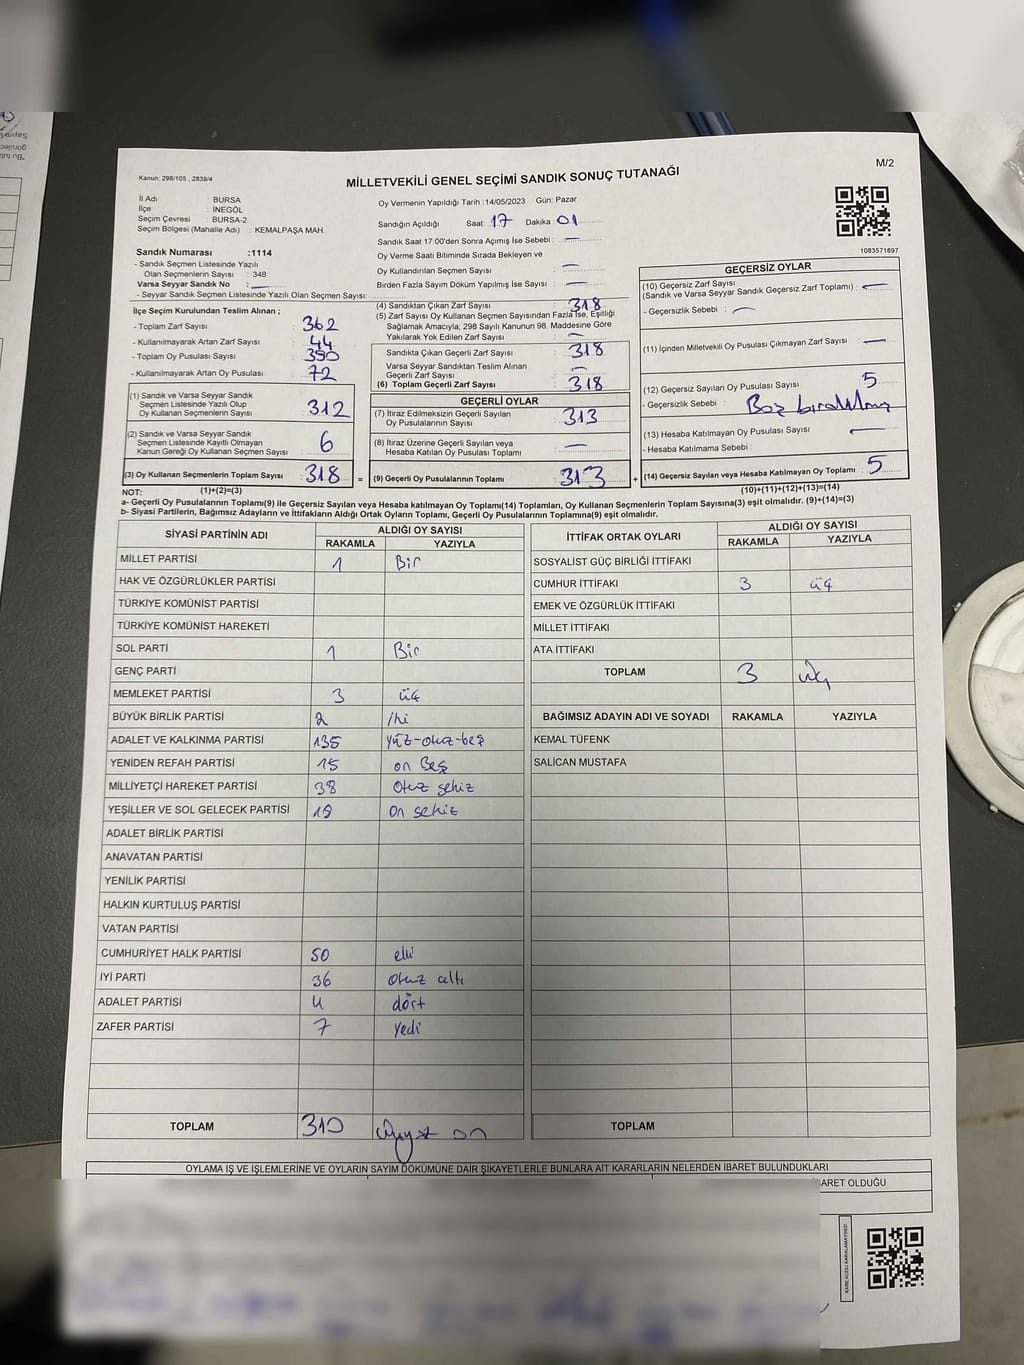 M/2
Kanun: 298/105 , 2839/4
MİLLETVEKİLİ GENEL SEÇİMİ SANDIK SONUÇ TUTANAĞI
İl Adı : BURSA
İlçe : İNEGÖL
Seçim Çevresi : BURSA-2
Seçim Bölgesi (Mahalle Adı) : KEMALPAŞA MAH.
Oy Vermenin Yapıldığı Tarih : 14/05/2023 Gün: Pazar
Sandığın Açıldığı Saat: 17 Dakika : 01
Sandık Saat 17:00'den Sonra Açımış İse Sebebi : —
Oy Verme Saati Bitiminde Sırada Bekleyen ve
Oy Kullandırılan Seçmen Sayısı : —
Birden Fazla Sayım Döküm Yapılmış İse Sayısı : —
1083571897
Sandık Numarası :1114
- Sandık Seçmen Listesinde Yazılı
Olan Seçmenlerin Sayısı : 348
Varsa Seyyar Sandık No : —
- Seyyar Sandık Seçmen Listesinde Yazılı Olan Seçmen Sayısı:
İlçe Seçim Kurulundan Teslim Alınan ;
- Toplam Zarf Sayısı : 362
- Kullanılmayarak Artan Zarf Sayısı : 44
- Toplam Oy Pusulası Sayısı : 390
- Kullanılmayarak Artan Oy Pusulası : 72
(1) Sandık ve Varsa Seyyar Sandık
Seçmen Listesinde Yazılı Olup
Oy Kullanan Seçmenlerin Sayısı : 312
(2) Sandık ve Varsa Seyyar Sandık
Seçmen Listesinde Kayıtlı Olmayan
Kanun Gereği Oy Kullanan Seçmen Sayısı : 6
(3) Oy Kullanan Seçmenlerin Toplam Sayısı : 318 =
(1)+(2)=(3)
(4) Sandıktan Çıkan Zarf Sayısı : 318
(5) Zarf Sayısı Oy Kullanan Seçmen Sayısından Fazla İse, Eşitliği
Sağlamak Amacıyla, 298 Sayılı Kanunun 98. Maddesine Göre
Yakılarak Yok Edilen Zarf Sayısı : —
Sandıkta Çıkan Geçerli Zarf Sayısı : 318
Varsa Seyyar Sandıktan Teslim Alınan
Geçerli Zarf Sayısı : —
(6) Toplam Geçerli Zarf Sayısı : 318
GEÇERLİ OYLAR
(7) İtiraz Edilmeksizin Geçerli Sayılan
Oy Pusulalarının Sayısı : 313
(8) İtiraz Üzerine Geçerli Sayılan veya
Hesaba Katılan Oy Pusulası Toplamı : —
(9) Geçerli Oy Pusulalarının Toplamı : 313 +
GEÇERSİZ OYLAR
(10) Geçersiz Zarf Sayısı
(Sandık ve Varsa Seyyar Sandık Geçersiz Zarf Toplamı) : —
- Geçersizlik Sebebi : —
(11) İçinden Milletvekili Oy Pusulası Çıkmayan Zarf Sayısı : —
(12) Geçersiz Sayılan Oy Pusulası Sayısı : 5
- Geçersizlik Sebebi : Boş bırakılmış
(13) Hesaba Katılmayan Oy Pusulası Sayısı : —
- Hesaba Katılmama Sebebi :
(14) Geçersiz Sayılan veya Hesaba Katılmayan Oy Toplamı : 5
(10)+(11)+(12)+(13)=(14)
NOT:
a- Geçerli Oy Pusulalarının Toplamı(9) ile Geçersiz Sayılan veya Hesaba katılmayan Oy Toplamı(14) Toplamları, Oy Kullanan Seçmenlerin Toplam Sayısına(3) eşit olmalıdır. (9)+(14)=(3)
b- Siyasi Partilerin, Bağımsız Adayların ve İttifakların Aldığı Ortak Oyların Toplamı, Geçerli Oy Pusulalarının Toplamına(9) eşit olmalıdır.
SİYASİ PARTİNİN ADI ALDIĞI OY SAYISI
RAKAMLA YAZIYLA
MİLLET PARTİSİ 1 Bir
HAK VE ÖZGÜRLÜKLER PARTİSİ
TÜRKİYE KOMÜNİST PARTİSİ
TÜRKİYE KOMÜNİST HAREKETİ
SOL PARTİ 1 Bir
GENÇ PARTİ
MEMLEKET PARTİSİ 3 üç
BÜYÜK BİRLİK PARTİSİ 2 iki
ADALET VE KALKINMA PARTİSİ 135 yüz-otuz-beş
YENİDEN REFAH PARTİSİ 15 on Beş
MİLLİYETÇİ HAREKET PARTİSİ 38 otuz sekiz
YEŞİLLER VE SOL GELECEK PARTİSİ 18 on sekiz
ADALET BİRLİK PARTİSİ
ANAVATAN PARTİSİ
YENİLİK PARTİSİ
HALKIN KURTULUŞ PARTİSİ
VATAN PARTİSİ
CUMHURİYET HALK PARTİSİ 50 elli
İYİ PARTİ 36 otuz altı
ADALET PARTİSİ 4 dört
ZAFER PARTİSİ 7 yedi
TOPLAM 310 üçyüz on
İTTİFAK ORTAK OYLARI ALDIĞI OY SAYISI
RAKAMLA YAZIYLA
SOSYALİST GÜÇ BİRLİĞİ İTTİFAKI
CUMHUR İTTİFAKI 3 üç
EMEK VE ÖZGÜRLÜK İTTİFAKI
MİLLET İTTİFAKI
ATA İTTİFAKI
TOPLAM 3 üç
BAĞIMSIZ ADAYIN ADI VE SOYADI RAKAMLA YAZIYLA
KEMAL TÜFENK
SALİCAN MUSTAFA
TOPLAM
OYLAMA İŞ VE İŞLEMLERİNE VE OYLARIN SAYIM DÖKÜMÜNE DAİR ŞİKAYETLERLE BUNLARA AİT KARARLARIN NELERDEN İBARET BULUNDUKLARI
BARET OLDUĞU